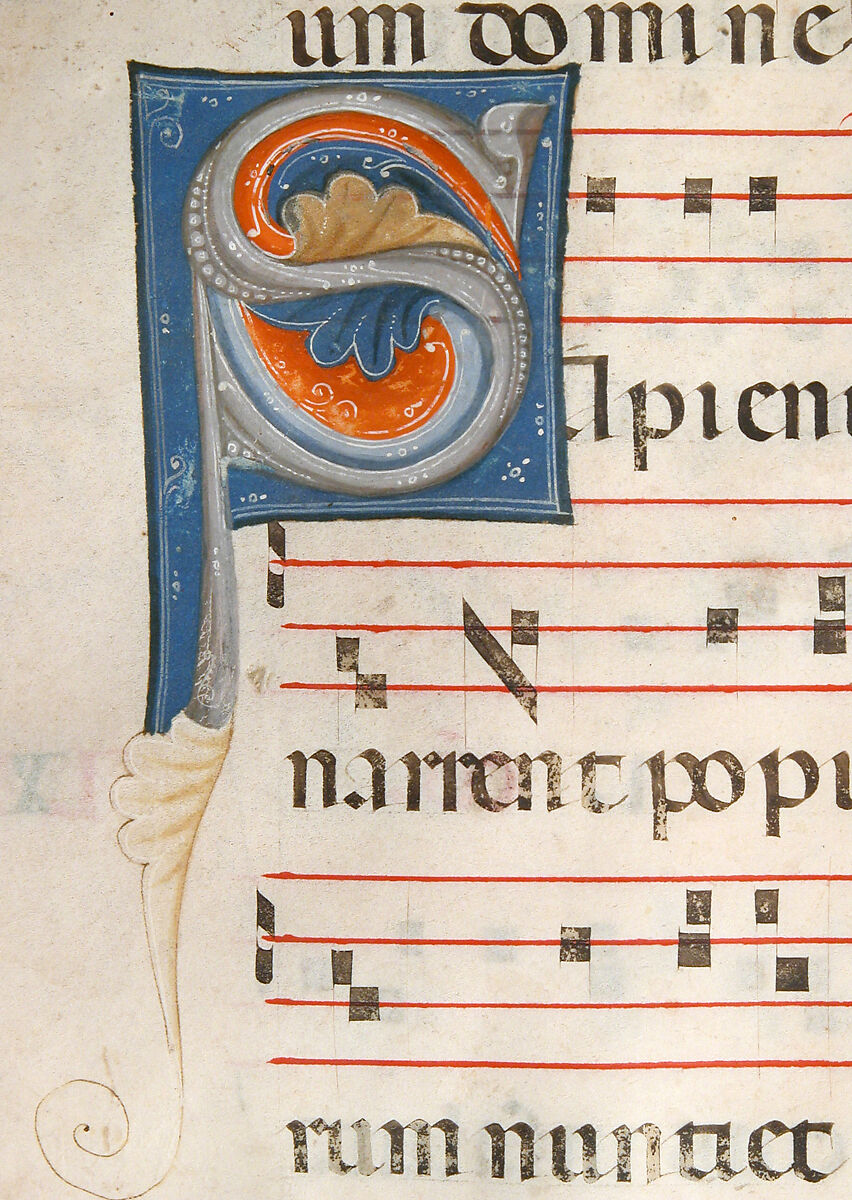 um domine
Sapien
narrent popu
rum nuntiet